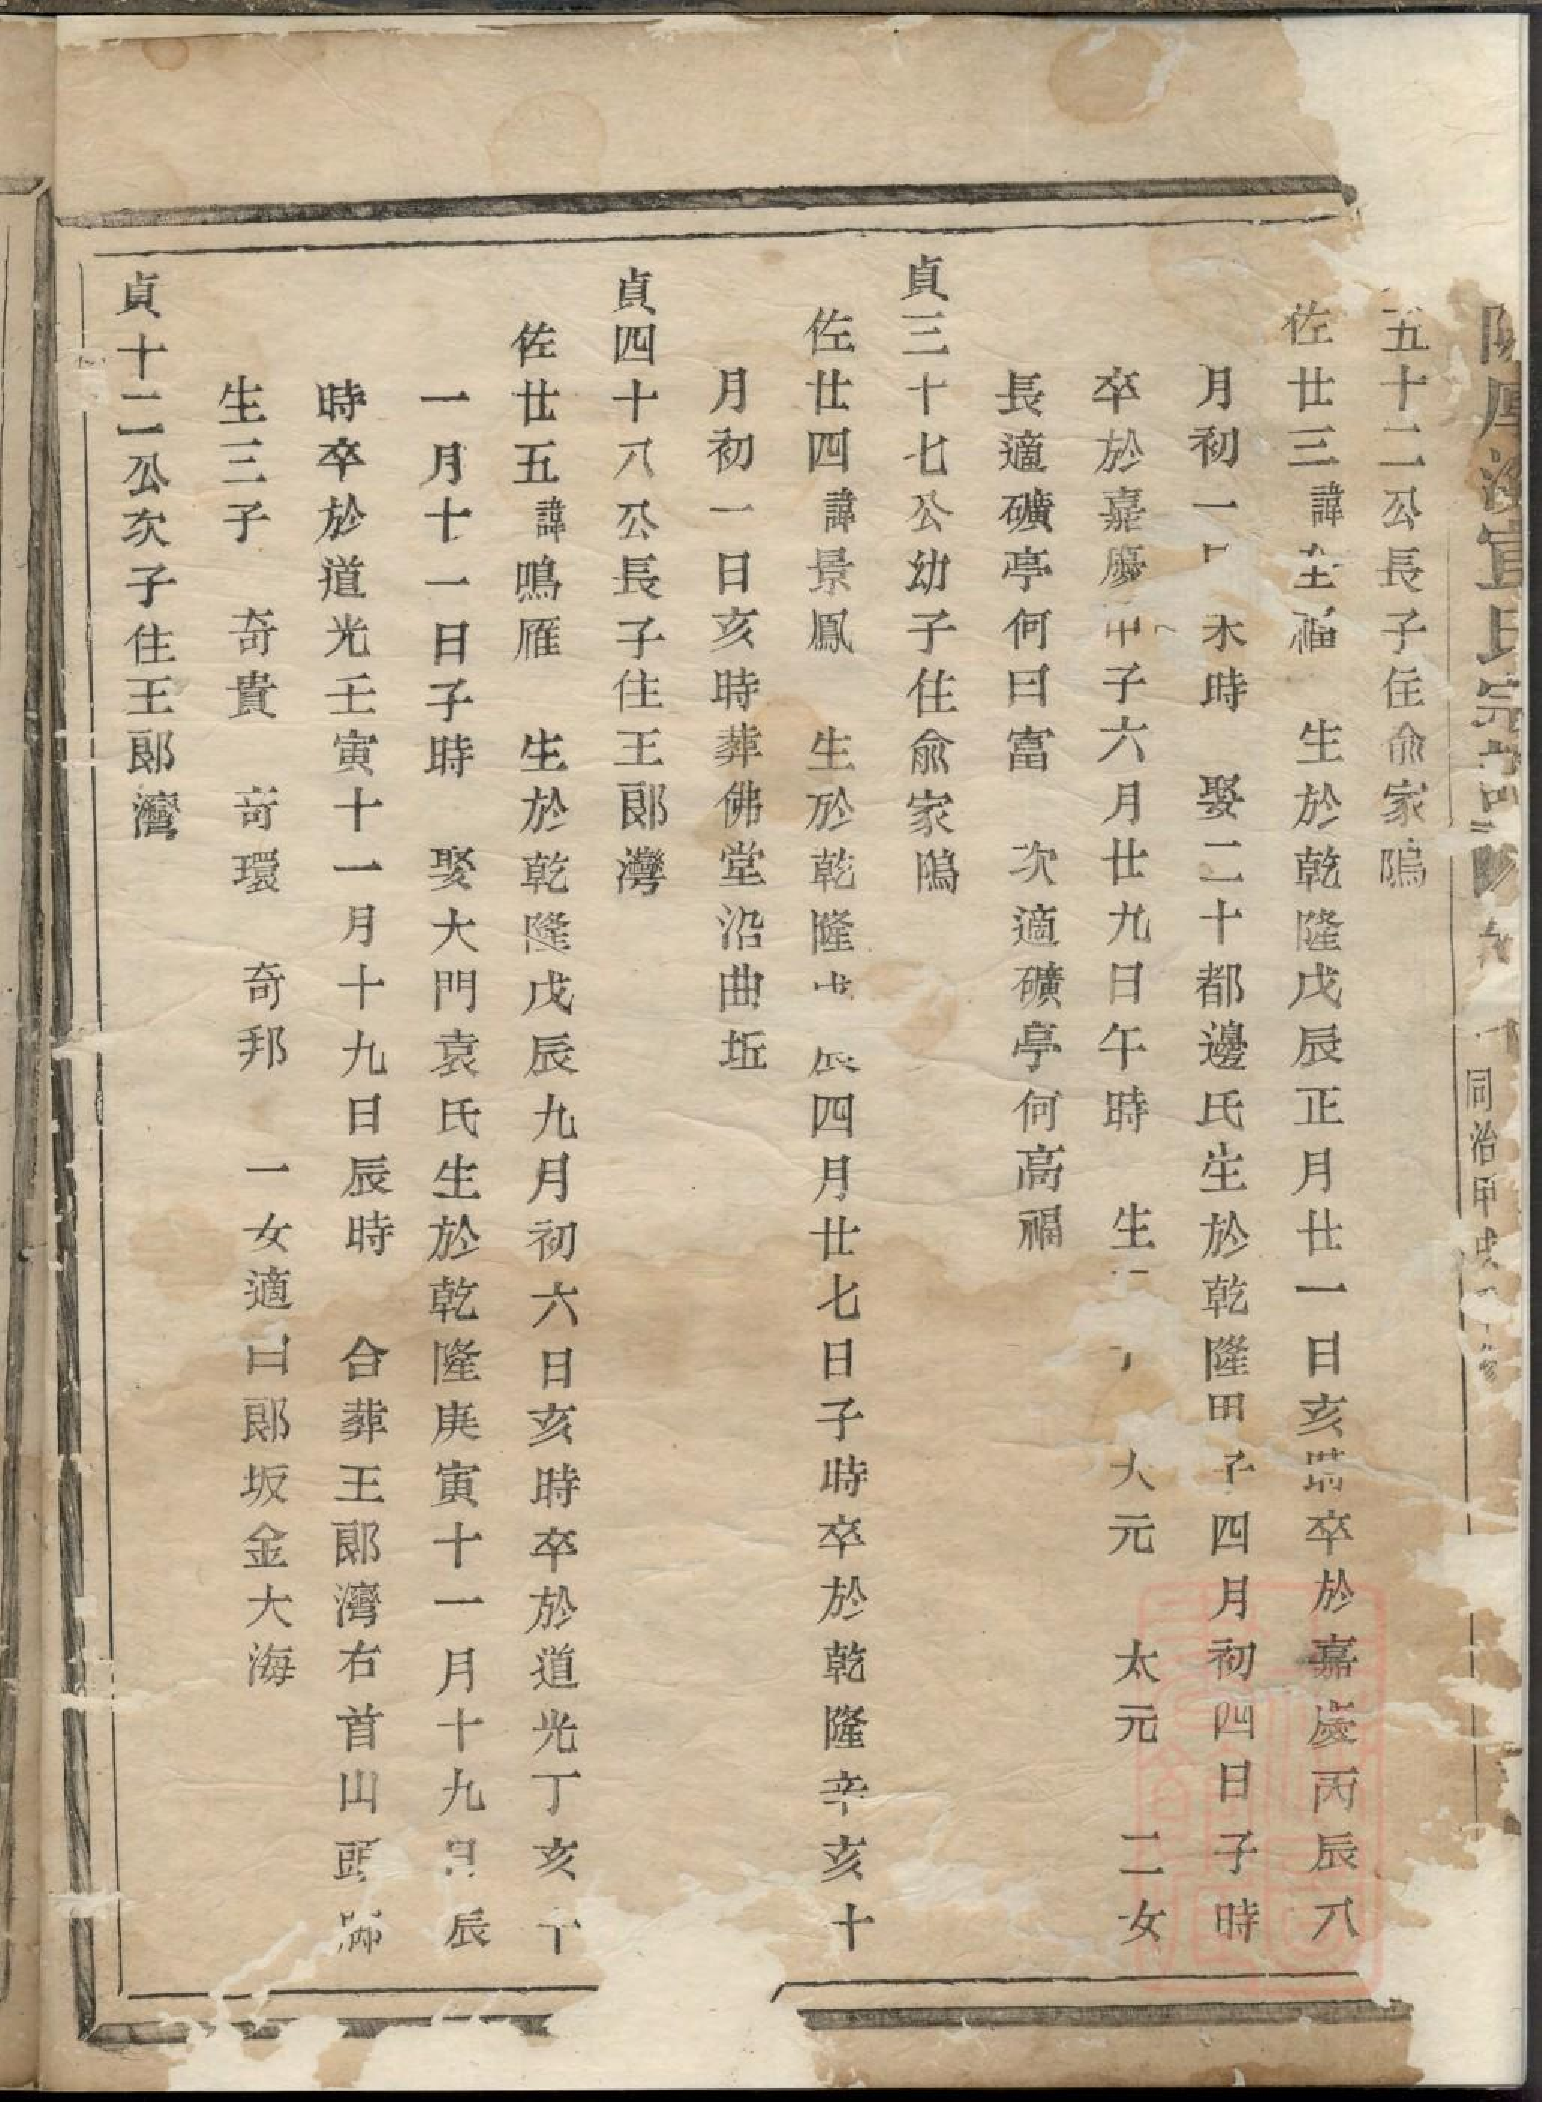 宣氏宗
同治甲戌
五十二公長子住俞家隝
佐廿三諱全福 生於乾隆戊辰正月廿一日亥時卒於嘉慶丙辰八
月初一日未時 娶二十都邊氏生於乾隆甲子四月初四日子時
卒於嘉慶甲子六月廿九日午時 生 大元 太元 二女
長適礦亭何曰富 次適礦亭何高福
貞三十七公幼子住俞家隝
佐廿四諱景鳳 生於乾隆戊辰四月廿七日子時卒於乾隆辛亥十
月初一日亥時葬佛堂沿曲坵
貞四十八公長子住王郎灣
佐廿五諱鳴雁 生於乾隆戊辰九月初六日亥時卒於道光丁亥十
一月十一日子時 娶大門袁氏生於乾隆庚寅十一月十九日辰
時卒於道光壬寅十一月十九日辰時 合葬王郎灣右首山頭
生三子 奇貴 奇環 奇邦 一女適白郎坂金大海
貞十二公次子住王郎灣